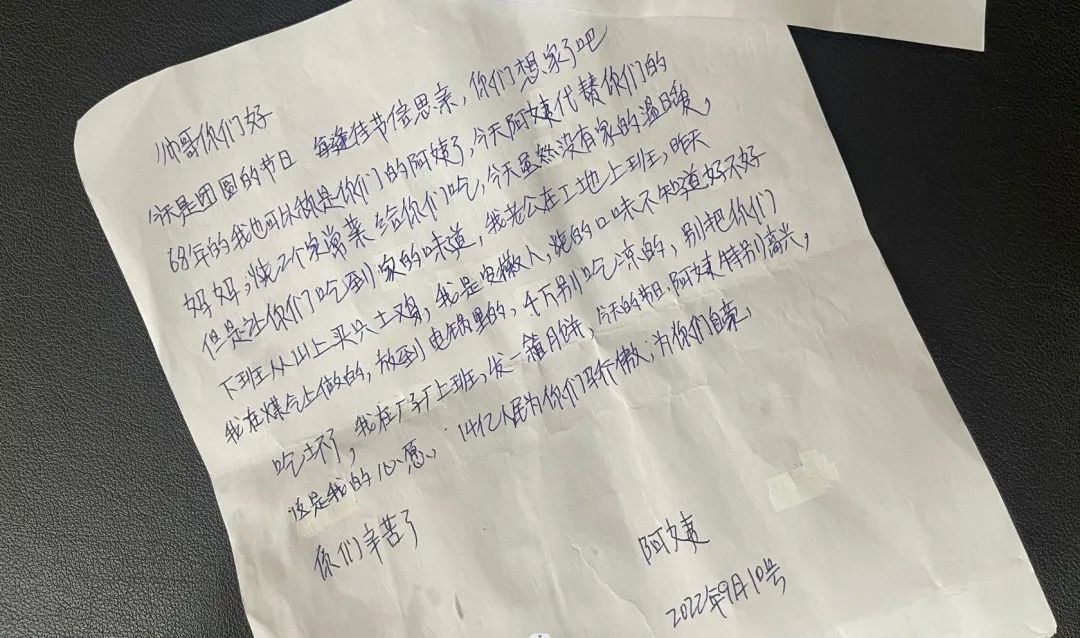 帅哥你们好
今天是团圆的节日 每逢佳节倍思亲，你们想家了吧
68年的我也可以做是你们的阿姨了，今天阿姨代替你们的
妈妈，烧2个家常菜给你们吃，今天虽然没有家的温暖，
但是让你们吃到家的味道，我老公在工地上班，昨天
下班从山上买只土鸡，我是安徽人，烧的口味不知道好不好
我在煤气上做的，放到电锅里的，千万别吃凉的，别把你们
吃坏了，我在厂上班，发一箱月饼，今天的节日，阿姨特别高兴，
这是我的心愿、14亿人民为你们骄傲，为你们自豪，
你们辛苦了
阿姨
2022年9月10号